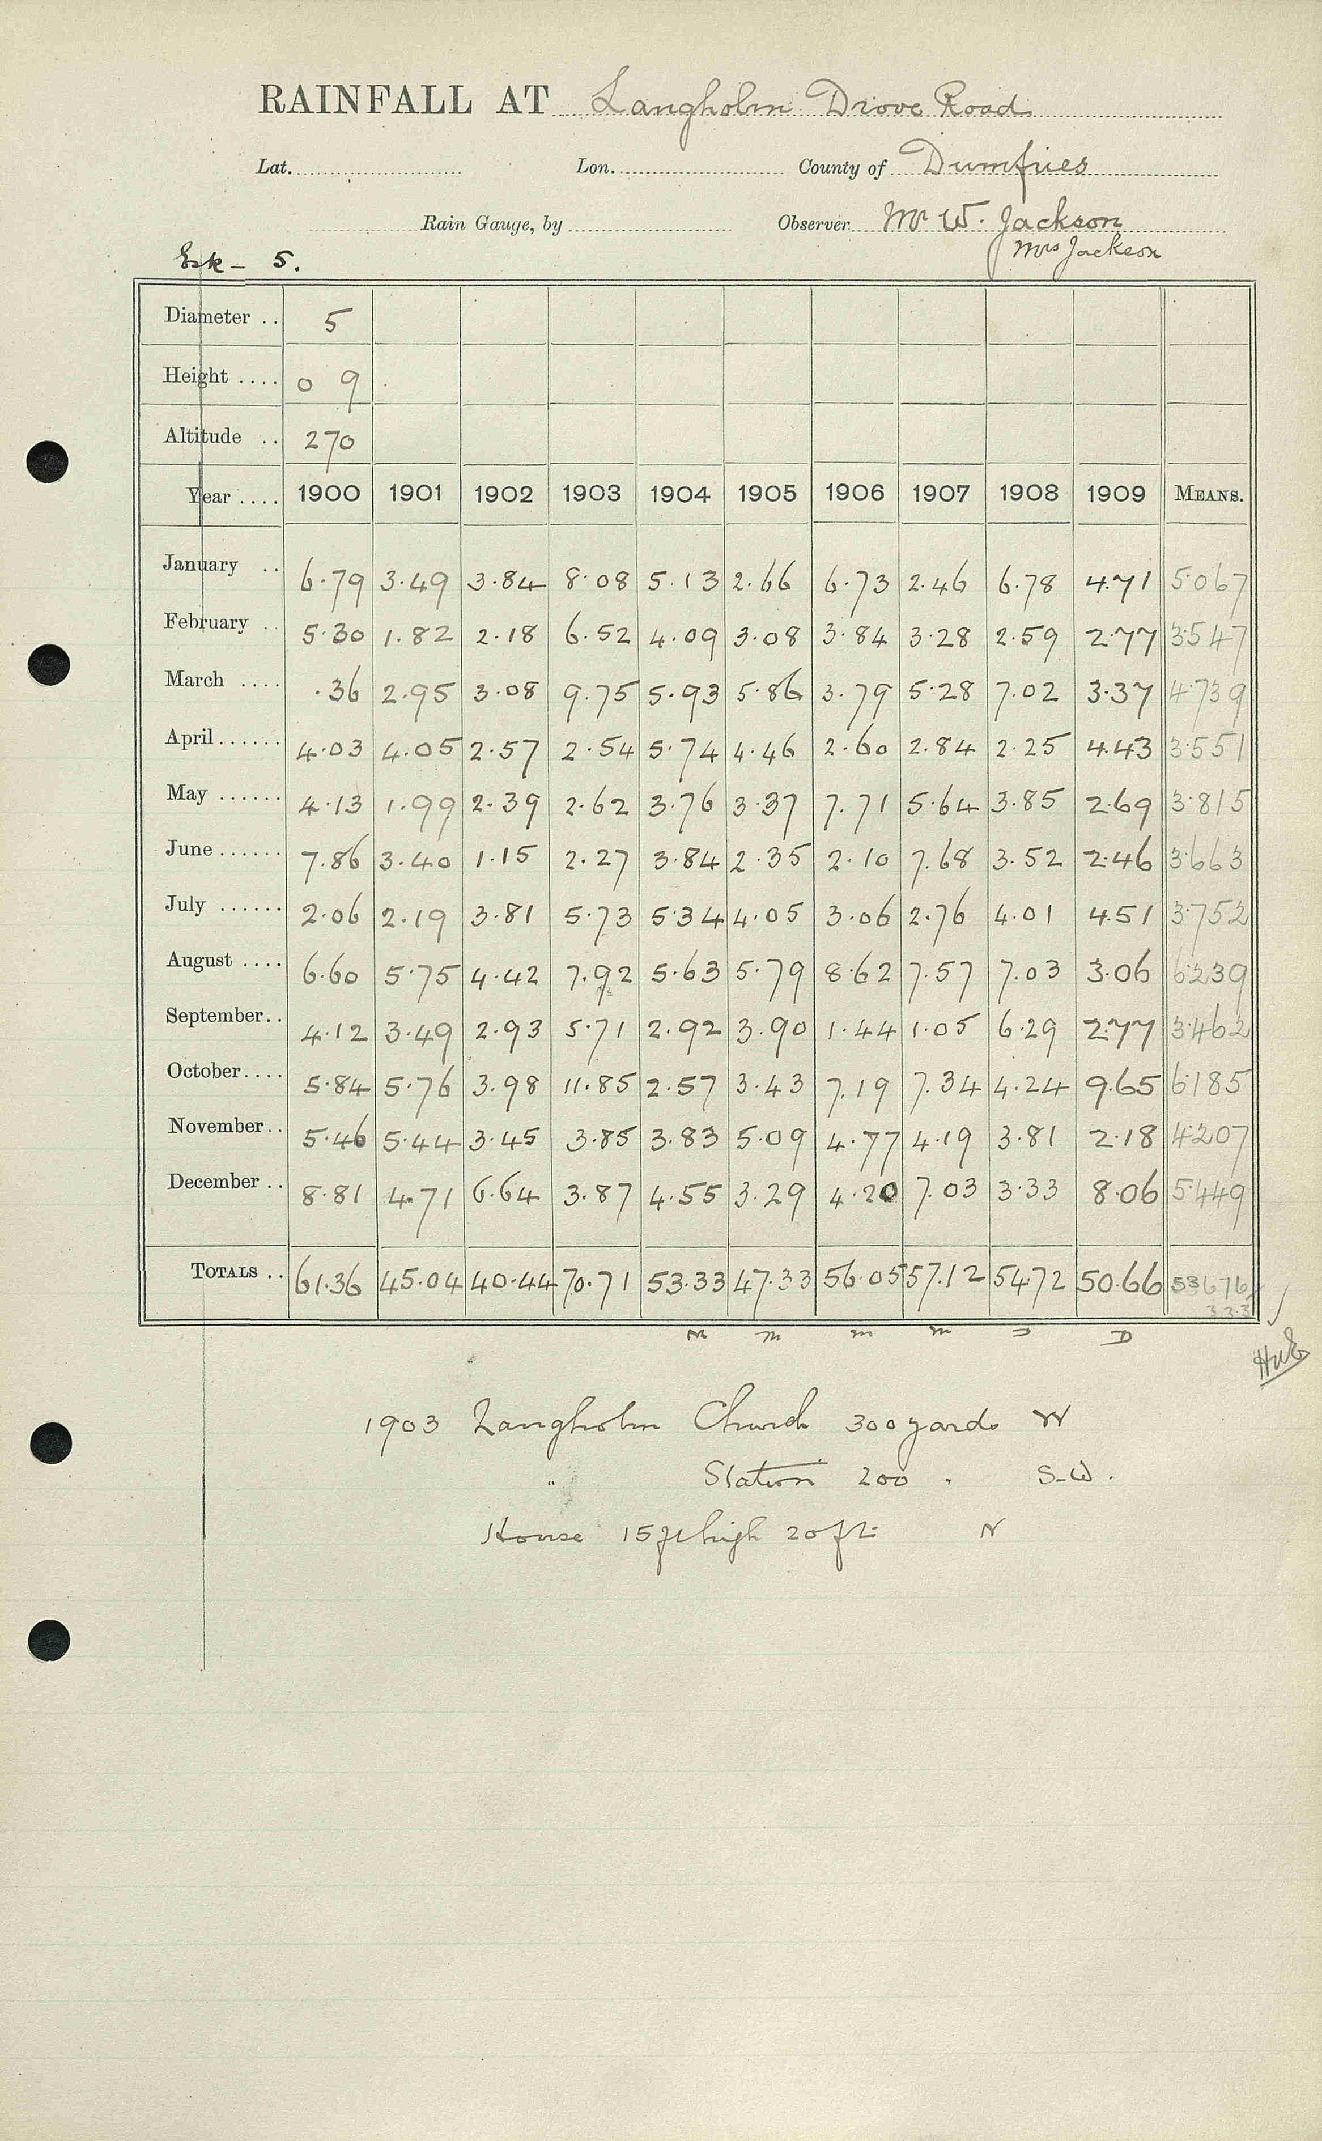 RAINFALL AT Langholm Drove Road
Lat. Lon. County of Dumfries
Rain Gauge, by Observer Mr W. Jackson
Esk - 5. Mrs Jackson
Diameter .. 5
Height .... 0 9
Altitude .. 270
Year .... 1900 1901 1902 1903 1904 1905 1906 1907 1908 1909 MEANS.
January .. 6.79 3.49 3.84 8.08 5.13 2.66 6.73 2.46 6.78 4.71 5.067
February .. 5.30 1.82 2.18 6.52 4.09 3.08 3.84 3.28 2.59 2.77 3.547
March .... .36 2.95 3.08 9.75 5.93 5.86 3.79 5.28 7.02 3.37 4.739
April ...... 4.03 4.05 2.57 2.54 5.74 4.46 2.60 2.84 2.25 4.43 3.551
May ...... 4.13 1.99 2.39 2.62 3.76 3.37 7.71 5.64 3.85 2.69 3.815
June ...... 7.86 3.40 1.15 2.27 3.84 2.35 2.10 7.68 3.52 2.46 3.663
July ...... 2.06 2.19 3.81 5.73 5.34 4.05 3.06 2.76 4.01 4.51 3.752
August .... 6.60 5.75 4.42 7.92 5.63 5.79 8.62 7.57 7.03 3.06 6.239
September .. 4.12 3.49 2.93 5.71 2.92 3.90 1.44 1.05 6.29 2.77 3.462
October .... 5.84 5.76 3.98 11.85 2.57 3.43 7.19 7.34 4.24 9.65 6.185
November .. 5.46 5.44 3.45 3.85 3.83 5.09 4.77 4.19 3.81 2.18 4.207
December .. 8.81 4.71 6.64 3.87 4.55 3.29 4.20 7.03 3.33 8.06 5.449
TOTALS .. 61.36 45.04 40.44 70.71 53.33 47.33 56.05 57.12 54.72 50.66 53.676
323
1903 Langholm Church 300 yards W
" Station 200 " S-W.
House 15 ft high 20 ft N